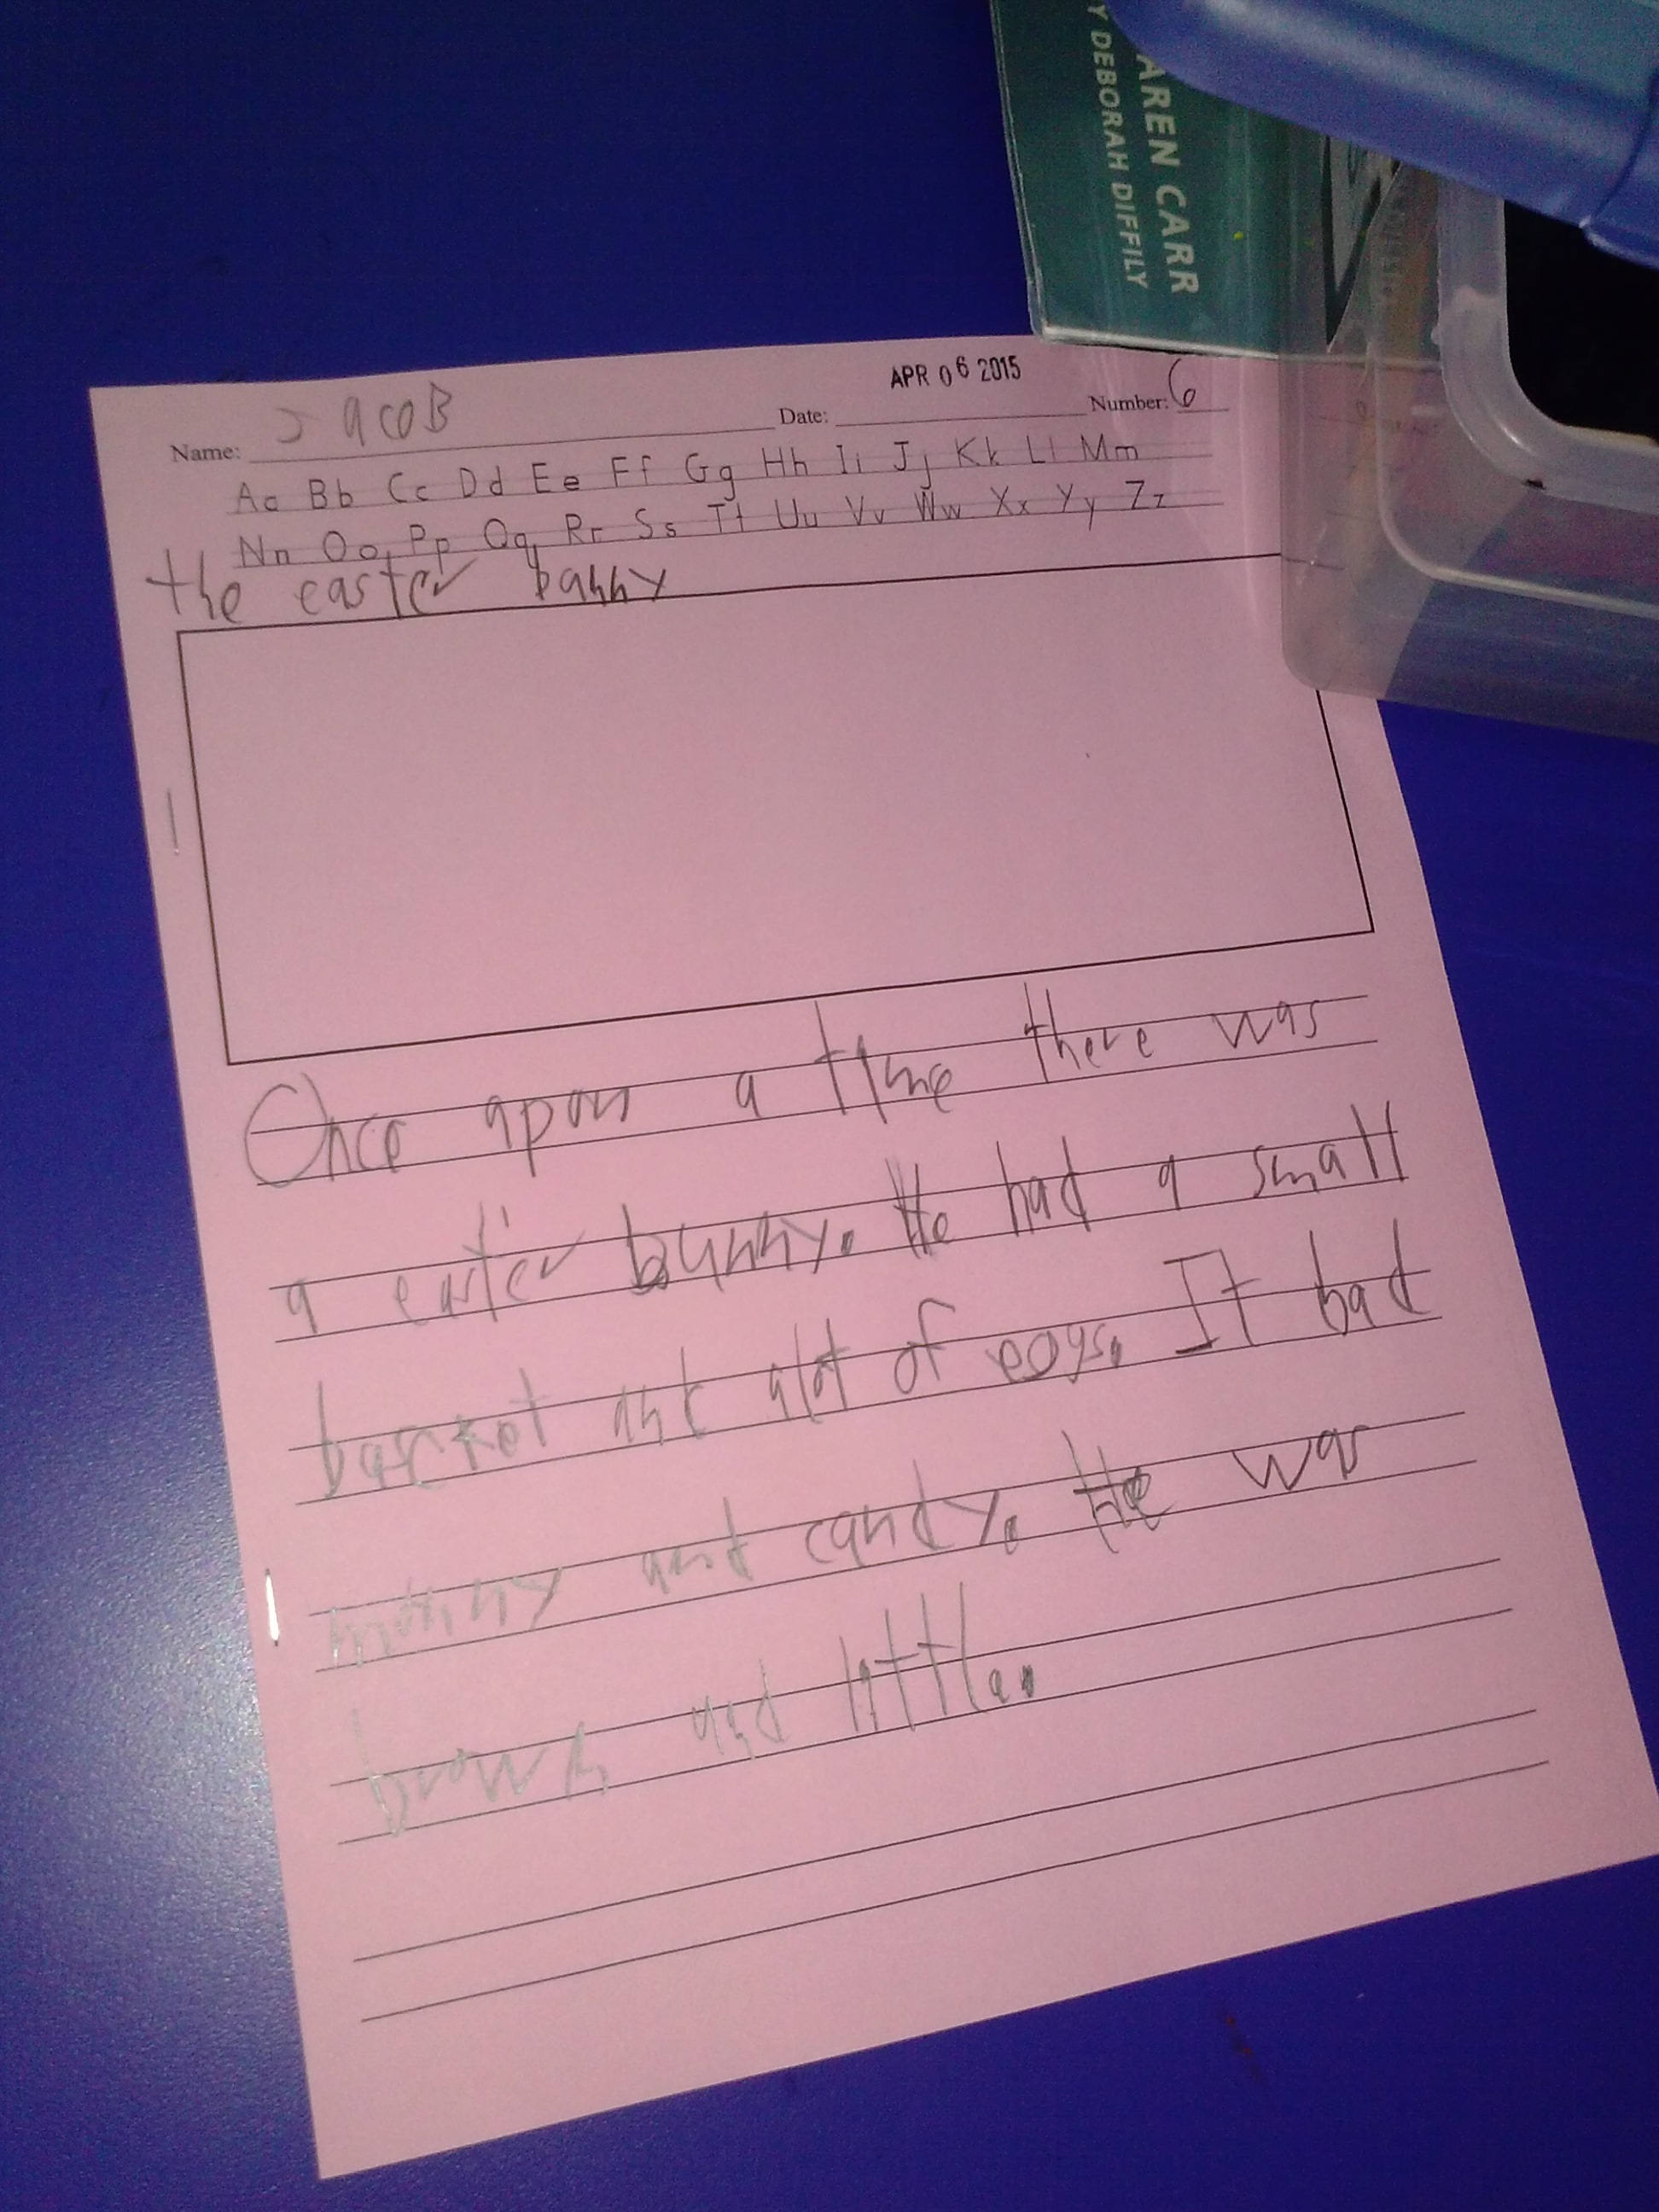 AREN CARR
Y DEBORAH DIFFILY
APR 06 2015
Name: JacoB Date: Number: 6
Aa Bb Cc Dd Ee Ff Gg Hh Ii Jj Kk Ll Mm
Nn Oo Pp Qq Rr Ss Tt Uu Vv Ww Xx Yy Zz
the easter bunny
Once apon a time there was
a easter bunny. He had a small
basket and alot of eggs. It had
monny and candy. He was
brown and little.